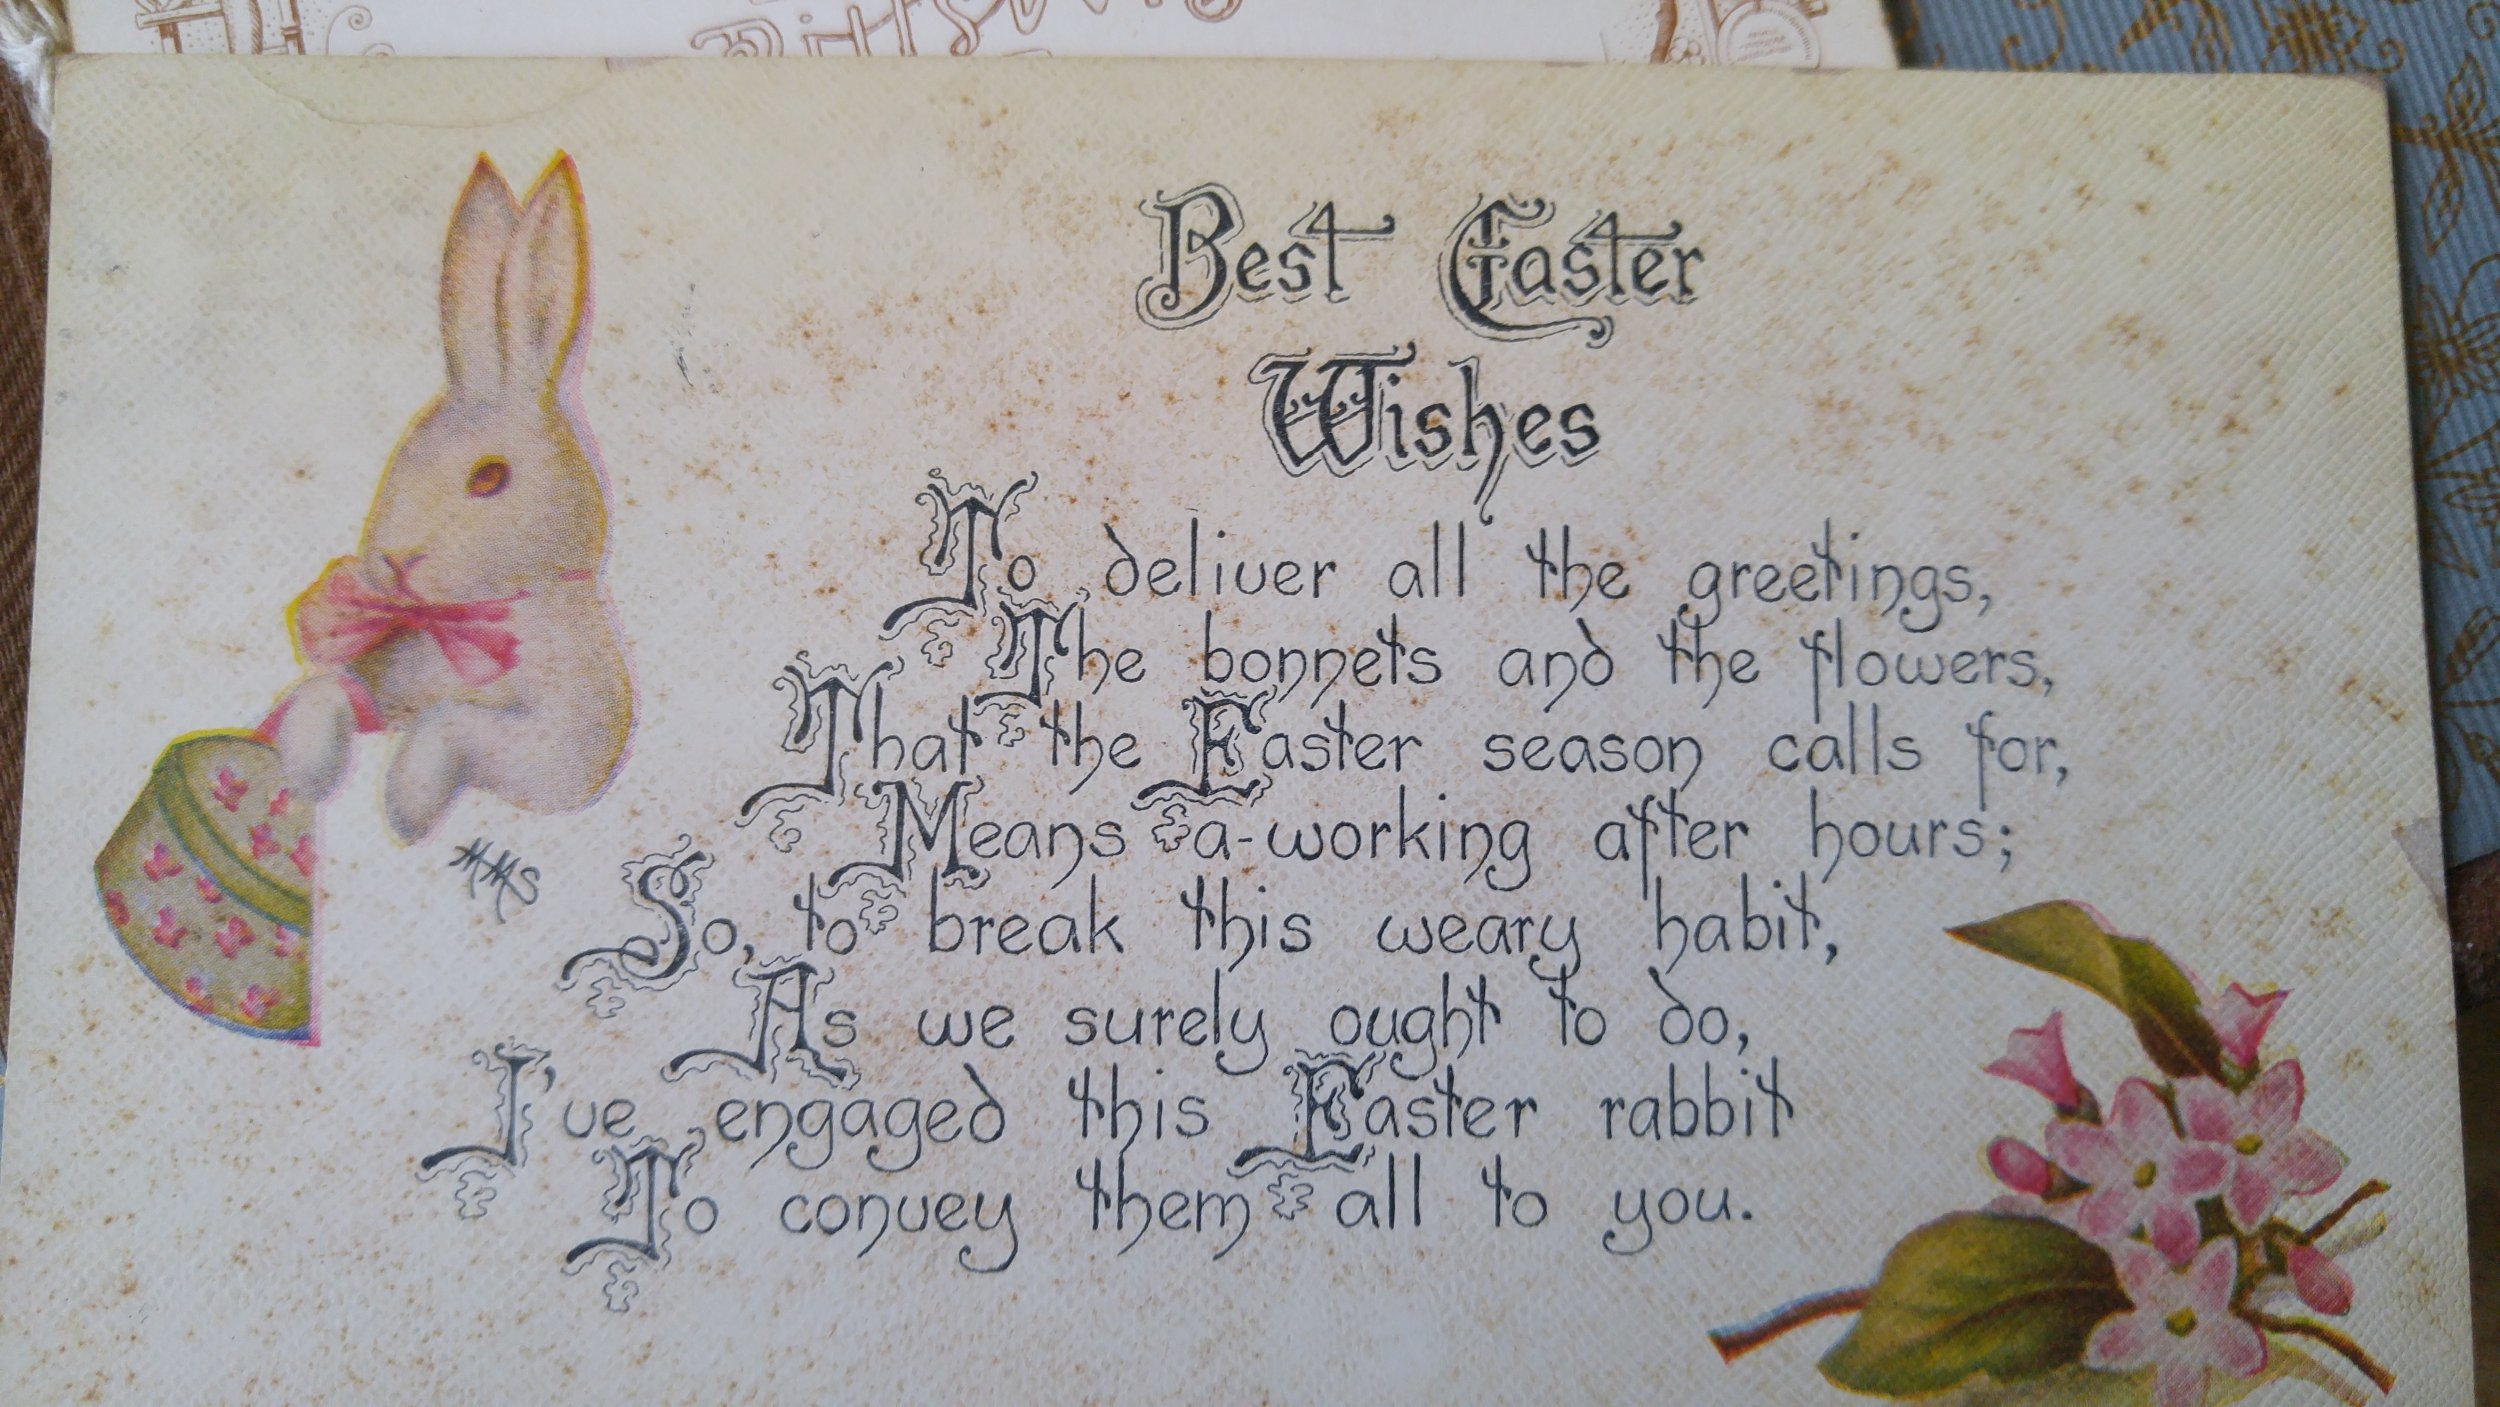 Best Easter
Wishes
To deliver all the greetings,
The bonnets and the flowers,
That the Easter season calls for,
Means a-working after hours;
So, to break this weary habit,
As we surely ought to do,
I've engaged this Easter rabbit
To convey them all to you.